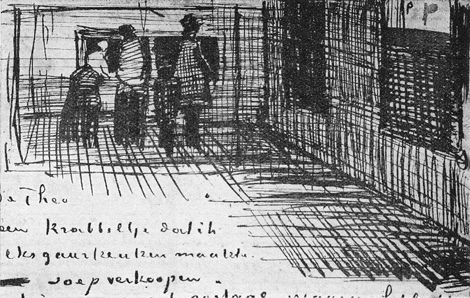 P P
e Theo
een krabbeltje dat ik
eksgaarkeuken maakte.
soep verkoopen.